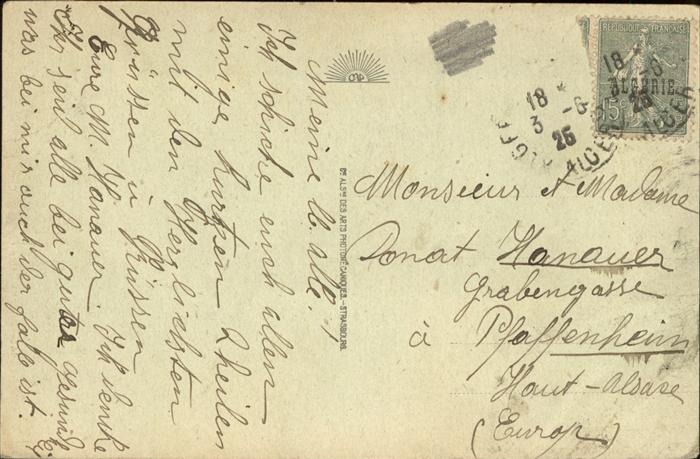 Meine lb. alle!
Ich schicke euch allen
einige kurtzen Zheilen
mit den Herzlichsten
Grüssen u Küssen
Eure M. Hanauer. Ich denke
Ihr seid alle bei guter gesundh
was bei mir auch der falle ist.
Cie ALSne DES ARTS PHOTOMÉCANIQUES - STRASBOURG.
RÉPUBLIQUE FRANÇAISE
ALGÉRIE
15c
18 *
3 -6
25
ALGER
ALGER
18
3 -6
25
ALGER
Monsieur et Madame
Donat Hanauer
Grabengasse
à Pfaffenheim
Haut-Alsace
(Europ)